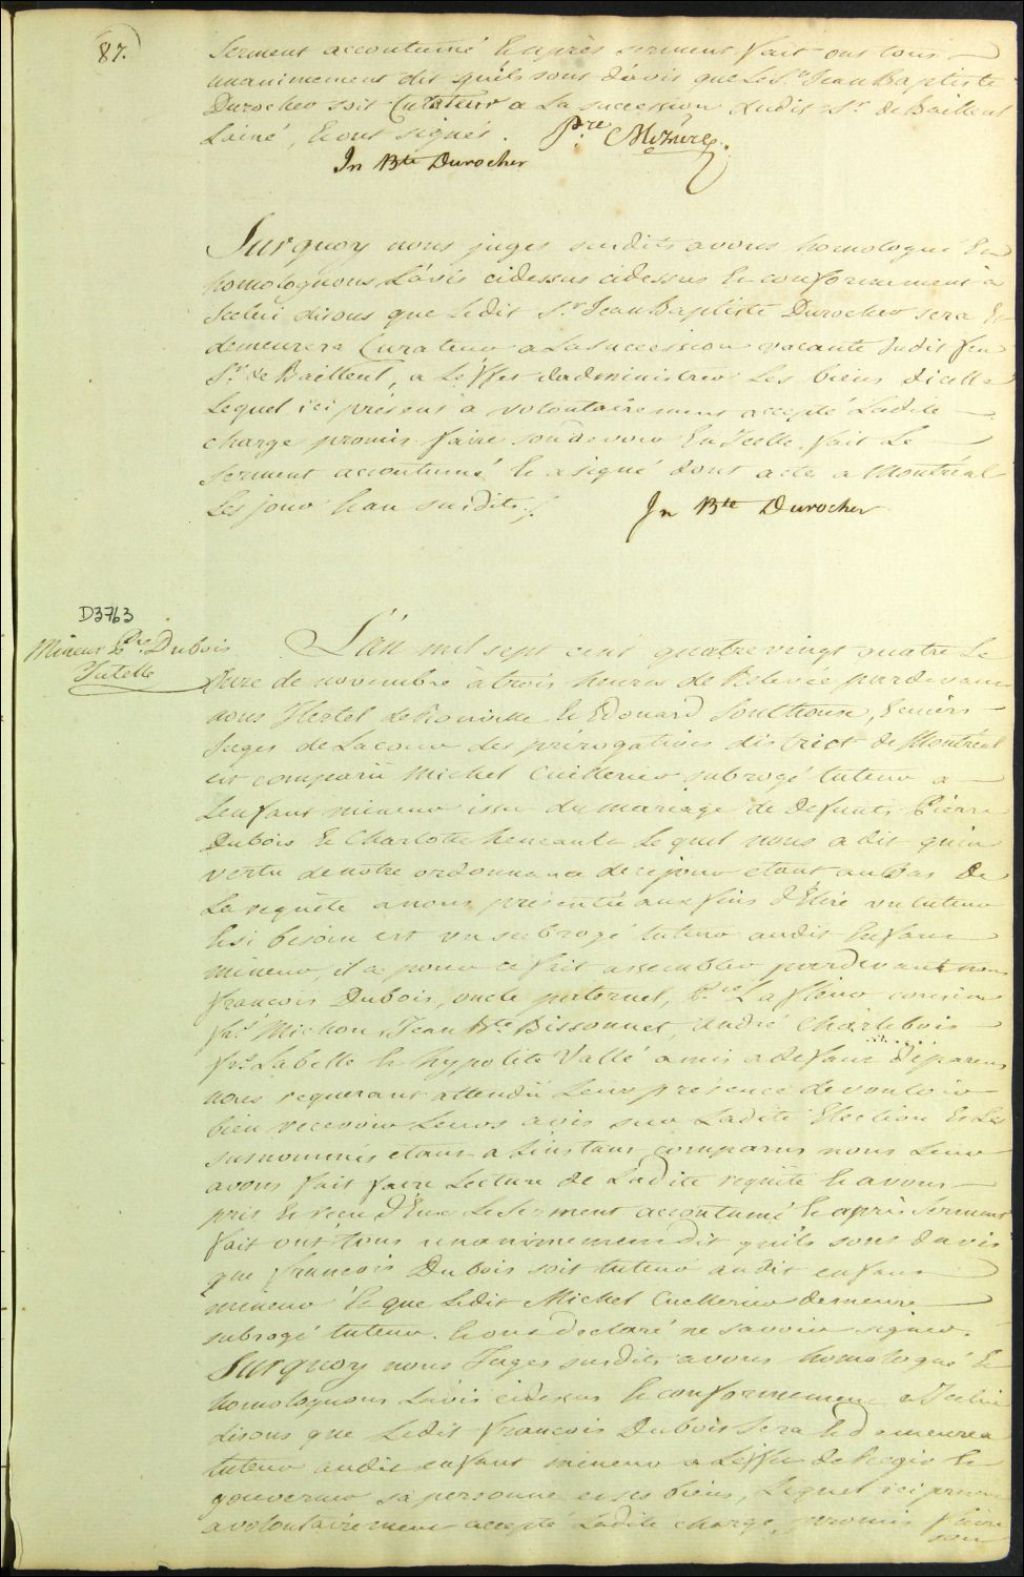 87.
Serment accoutumé & après serment fait ont tous
unanimement dit qu'ils sont d'avis que le S.r Jean Baptiste
Durocher soit Curateur a La succession dudit S.r de Bailleul
L'ainé, & ont signés. P.re Mézière
Jn Bte Durocher
Surquoy nous juges susdits avons homologué &
homologuons L'avis cidessus cidessus & conformement à
Icelui disons que Ledit S.r Jean Baptiste Durocher sera &
demeurera Curateur a La succession vacante dudit feu
S.r de Bailleul, a L'effet dadministrer Les biens dicelle
Lequel ici présent a volontairement accepté Ladite
charge promis faire son devoir En Icelle, fait Le
serment accoutumé & a signé dont acte a Montréal
Les jour & an susdits ./.
Jn Bte Durocher
D3763
Mineur P.re Dubois
Tutelle
L'an mil sept cent quatre vingt quatre Le
Onze de novembre à trois heures de Relevée pardevant
nous Hertel de Rouville & Edouard Southouse, Ecuiers
Juges de La cour des prérogatives district de Montréal
est comparu Michel Cuillerier subrogé tuteur a
L'enfant mineur issu du mariage de Defunts Pierre
Dubois & Charlotte Lequel nous a dit qu'en
vertu de notre ordonnance de ce jour etant au Bas De
La requête a nous présentée aux fins d'Elire un tuteur
& si besoin est un subrogé tuteur audit Enfant
mineur, il a pour ce fait assembler pardevant nous
francois Dubois, oncle paternel, P.re Lafleur cousin
Michon, Jean Bte Bissonnet, André Charlebois
Labelle & hypolite Vallé amis a defaut De parens
nous requerant attendû Leur présence de vouloir
bien recevoir Leurs avis sur Ladite Election Et Les
susnommés etant a Linstant comparus nous Leur
avons fait faire Lecture de Ladite requête & avons
pris & recu d'Eux Le Serment accoutumé & après Serment
fait ont tous unanimement dit qu'ils sont davis
que francois Dubois soit tuteur audit enfant
mineur & que Ledit Michel Cuellerier demeure
subrogé tuteur. & ont declaré ne savoir signer.
Surquoy nous Juges susdits avons homologué &
homologuons L'avis cidessus & conformement a Icelui
disons que Ledit francois Dubois Sera & demeurera
tuteur audit enfant mineur a L'effet de Regir &
gouverner sa personne et ses biens, Lequel ici présent
a volontairement accepté Ladite charge, promis faire
son